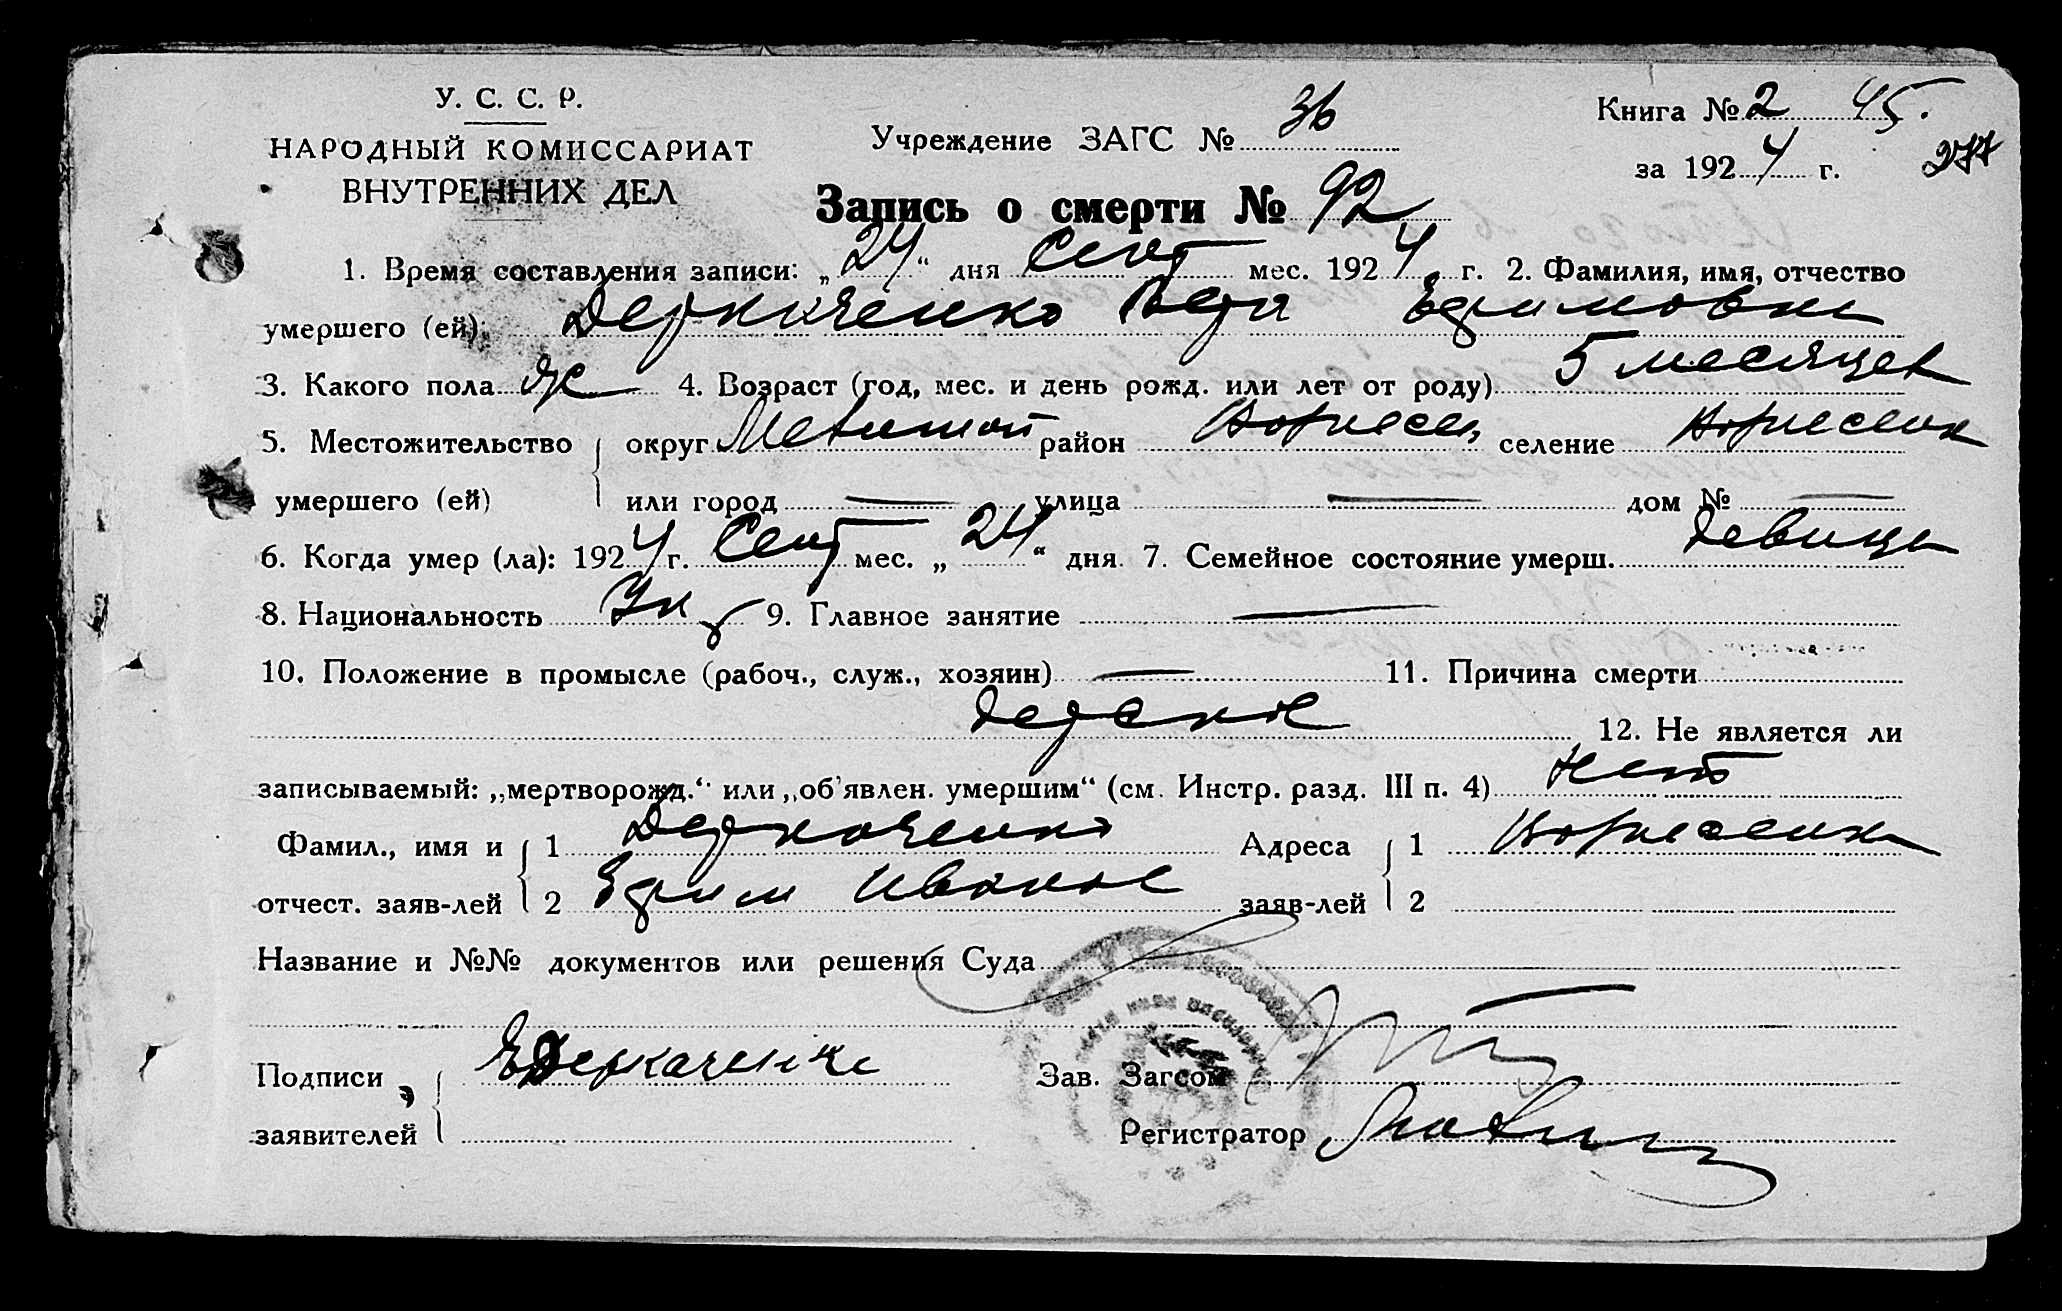 У. С. С. Р.
НАРОДНЫЙ КОМИССАРИАТ
ВНУТРЕННИХ ДЕЛ
Учреждение ЗАГС № 36
Книга № 2 45.
за 1924 г. 277
Запись о смерти № 92
1. Время составления записи: „24“ дня Сент мес. 1924 г. 2. Фамилия, имя, отчество
умершего (ей) Деркаченко Вера Ефимовна
3. Какого пола ж 4. Возраст (год, мес. и день рожд. или лет от роду) 5 месяцев
5. Местожительство округ Мелитоп район Вознесен селение Вознесенк
умершего (ей) или город — улица — дом № —
6. Когда умер (ла): 1924 г. Сент мес. „24“ дня. 7. Семейное состояние умерш. девица
8. Национальность Ук 9. Главное занятие —
10. Положение в промысле (рабоч., служ., хозяин) — 11. Причина смерти
детское 12. Не является ли
записываемый: „мертворожд.“ или „об'явлен. умершим“ (см. Инстр. разд. III п. 4) нет
Фамил., имя и 1 Деркаченко Адреса 1 Вознесенка
отчест. заяв-лей 2 Ефим Иванов заяв-лей 2
Название и №№ документов или решения Суда
Подписи ЕДеркаченко Зав. Загсом
заявителей Регистратор